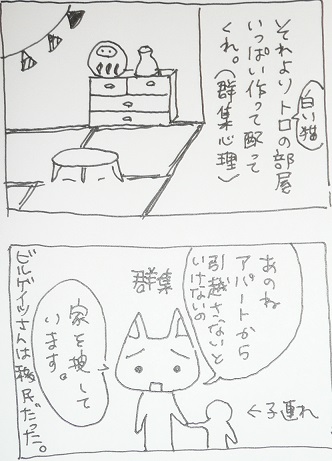 それよりトロの部屋
(白い猫)
いっぱい作って配って
くれ。(群集心理)
あのね
アパートから
引越さないと
いけないの
群集
家を捜して
います。
←子連れ
ビルゲイツさんは移民だった。